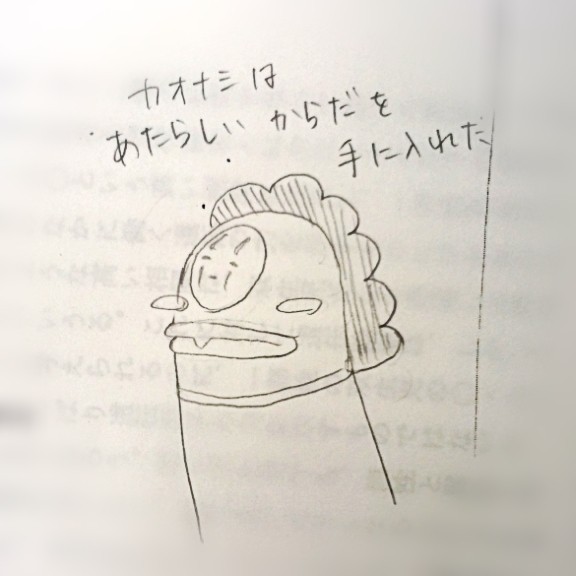 カオナシは
あたらしい からだを
手に入れた